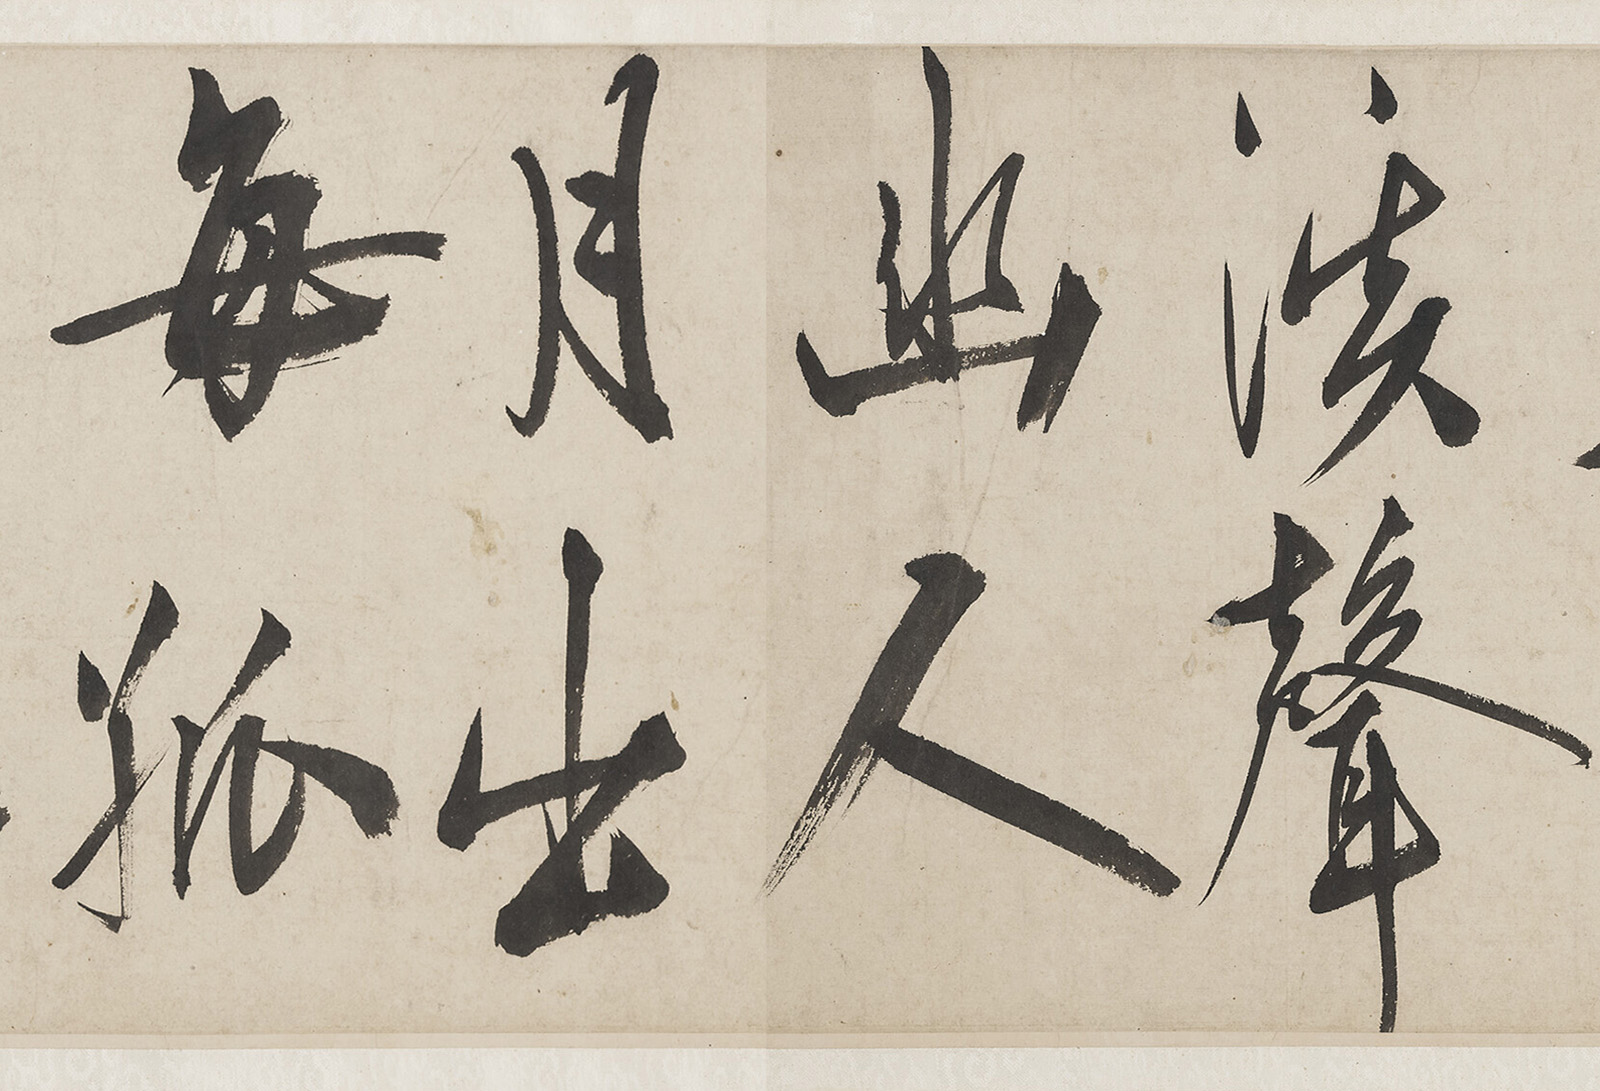 溪聲
幽人
月出
每孤